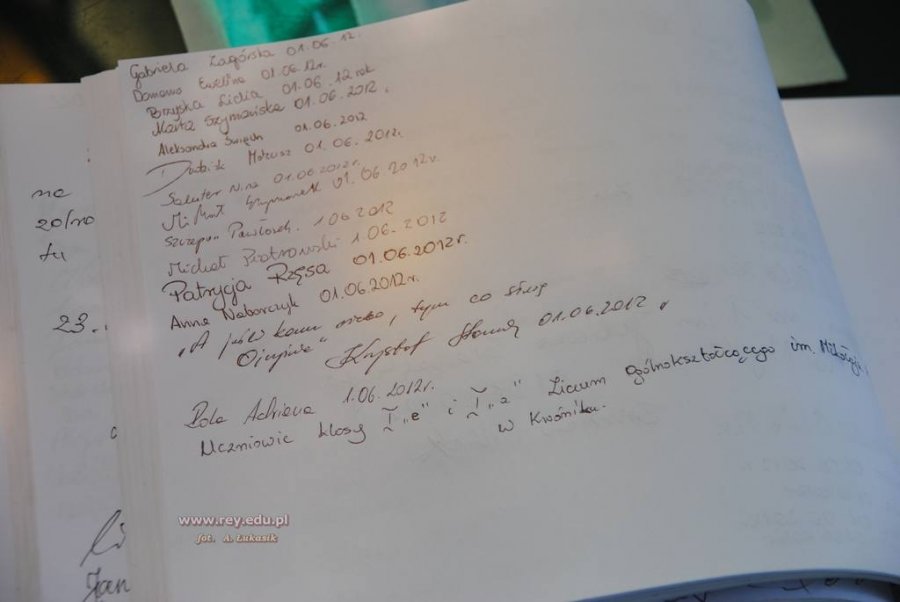 Gabriela Zagórska 01.06 12.
Domowa Ewelina 01.06.12r.
Brzyska Lidia 01.06. 12 rok
Marta Szymańska 01.06.2012.
Aleksandra Święch 01.06.2012
Mateusz 01.06.2012r.
Nina 01.06.2012r.
01.06 2012r.
Szczepan Pawłosek. 1.06 2012
Michał Piotrowski 1.06.2012
Patrycja Rzęsa 01.06.2012r.
Anna Naborczyk 01.06.2012r.
„A komu niebo, tym co służą
Ojczyźnie" Krzysztof 01.06.2012 r
1.06.2012r.
Uczniowie klasy I „e" i I „a" Liceum ogólnokształcącego im. Mikołaja
w Kraśniku.
na
20/20
tu
23.
Jan
www.rey.edu.pl
fot. A. Łukasik